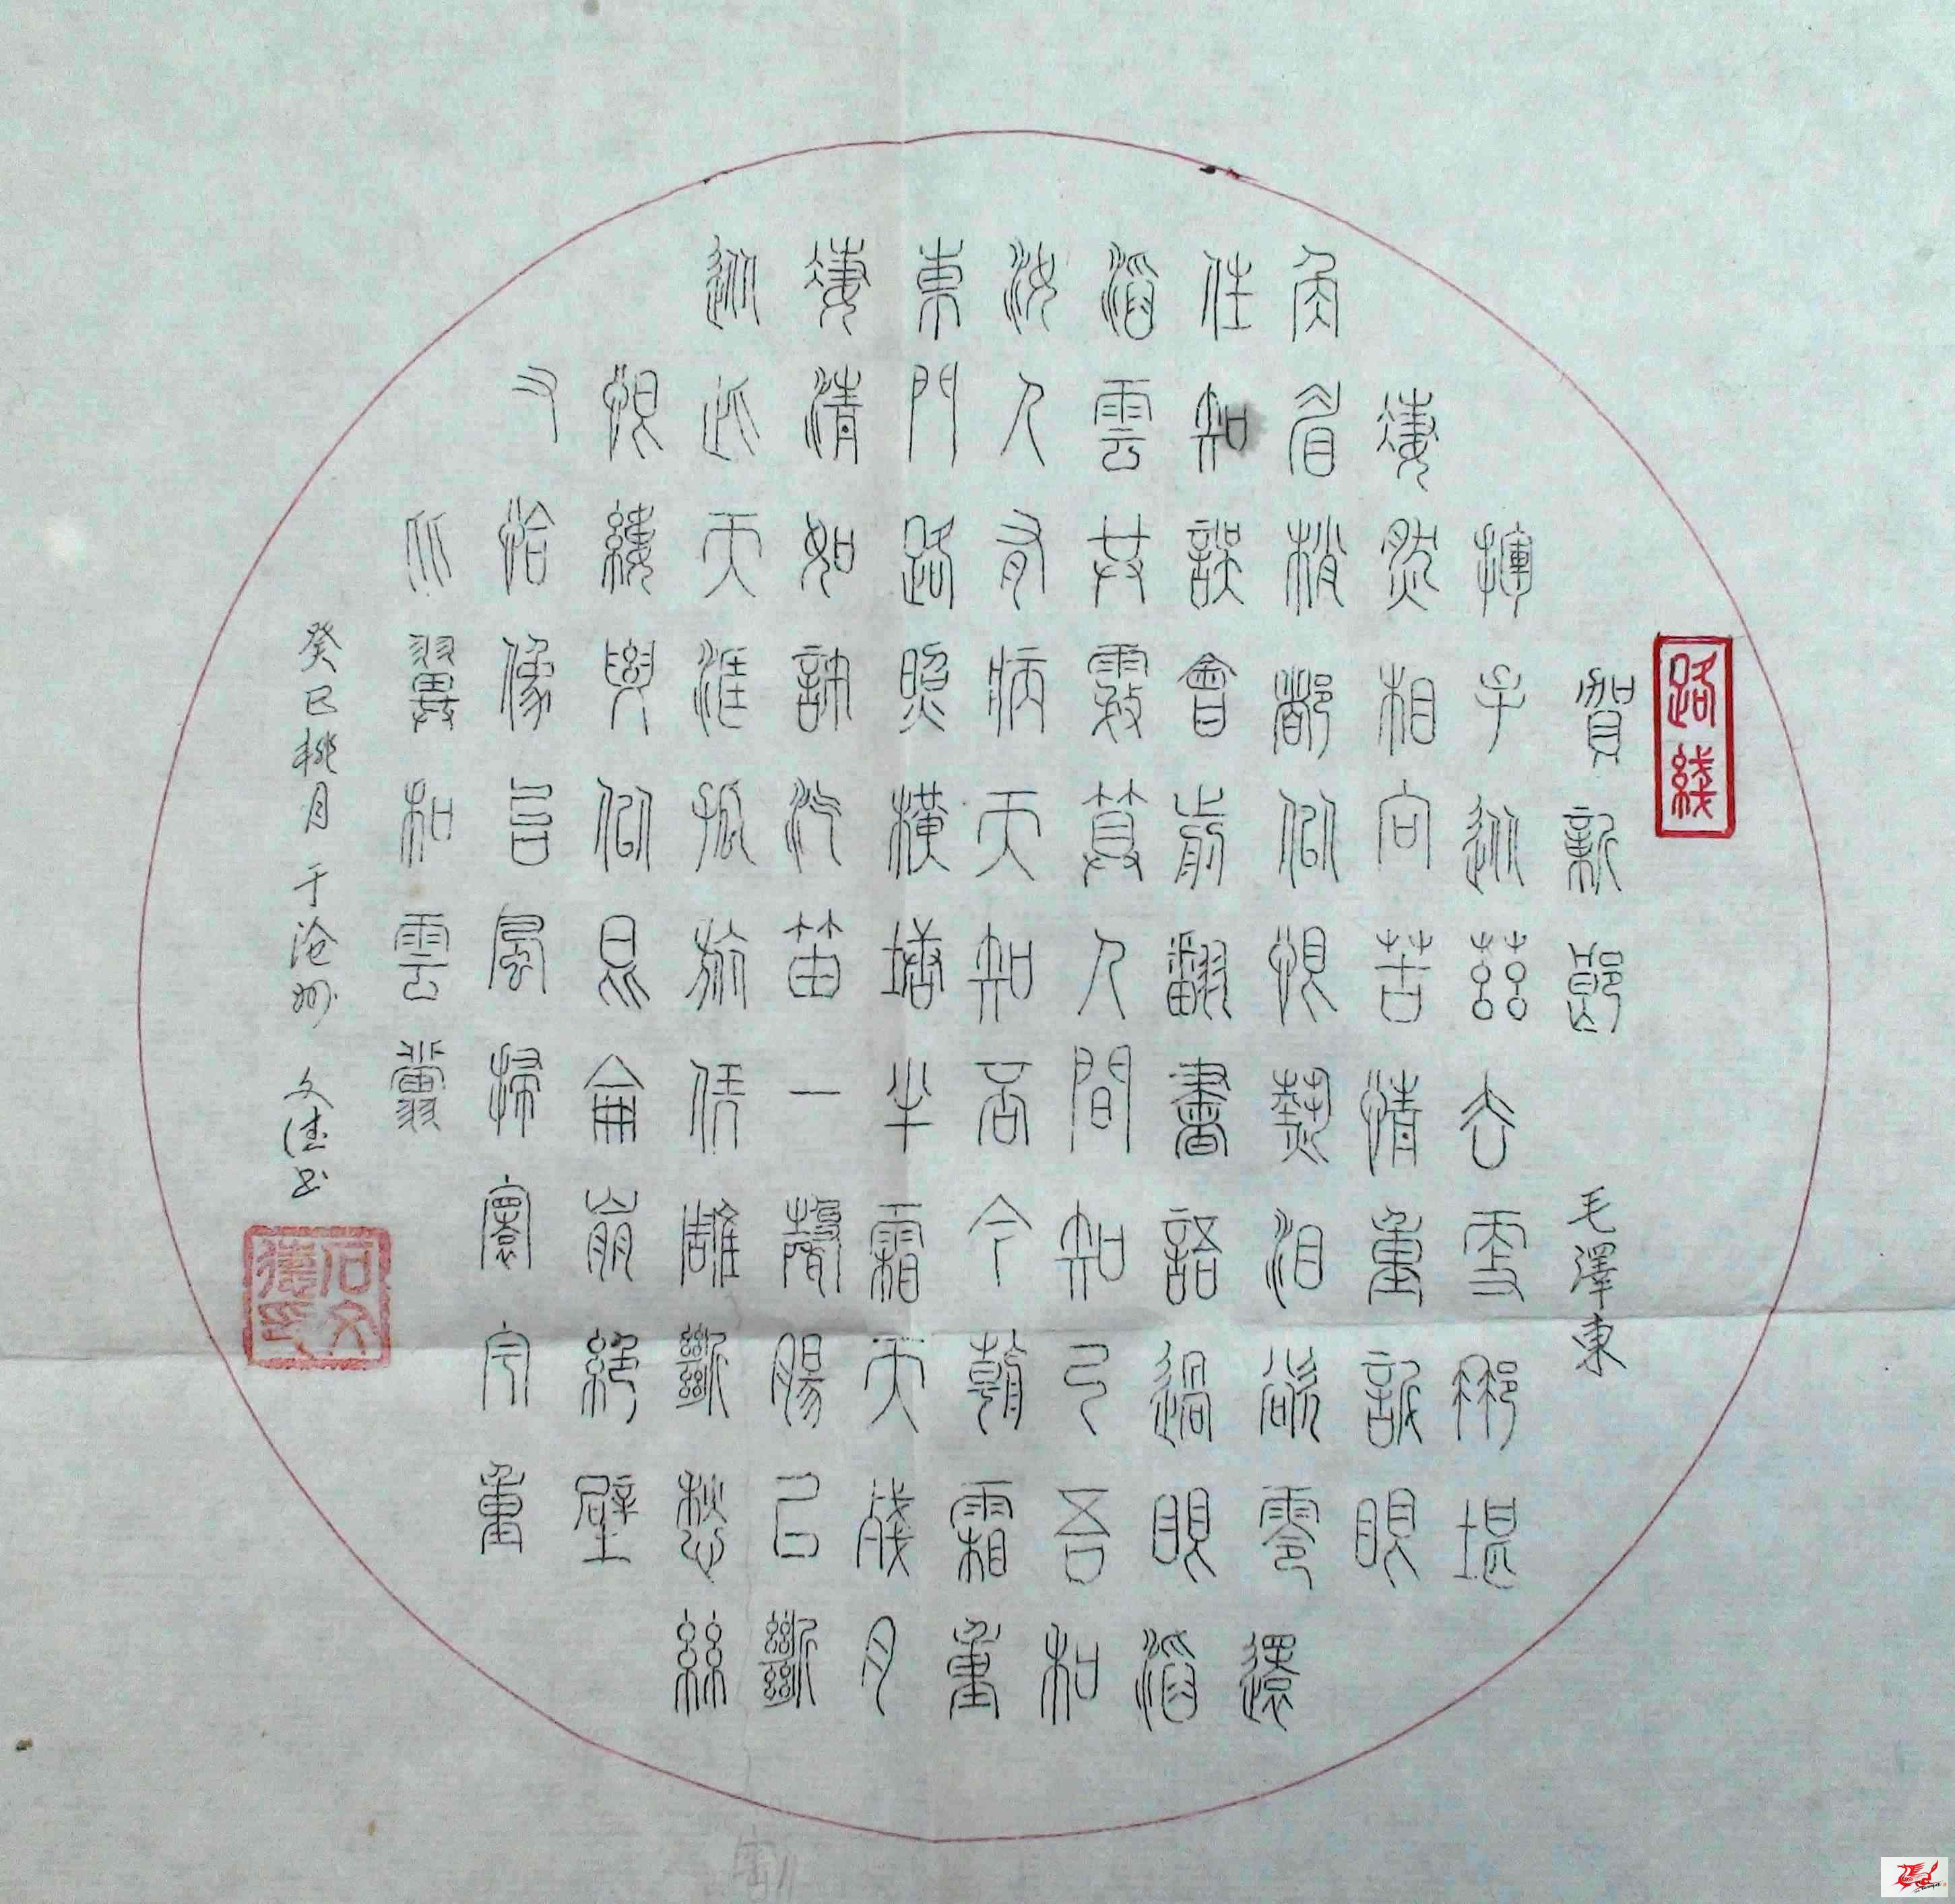 路綫
賀新郎 毛澤東
揮手从茲去更那堪
凄然相向苦情重訴眼
角眉梢都似恨熱泪欲零還
住知誤會前翻書語過眼滔
滔雲共霧算人間知己吾和
汝人有病天知否今朝霜重
東門路照橫塘半霜天殘月
凄清如許汽笛一聲腸已斷
从此天涯孤旅凭雕斷愁絲
恨縷要似昆侖崩絕壁
又恰像台風掃寰宇重
比翼和雲翥
癸巳桃月于沧州 文德书
文德印